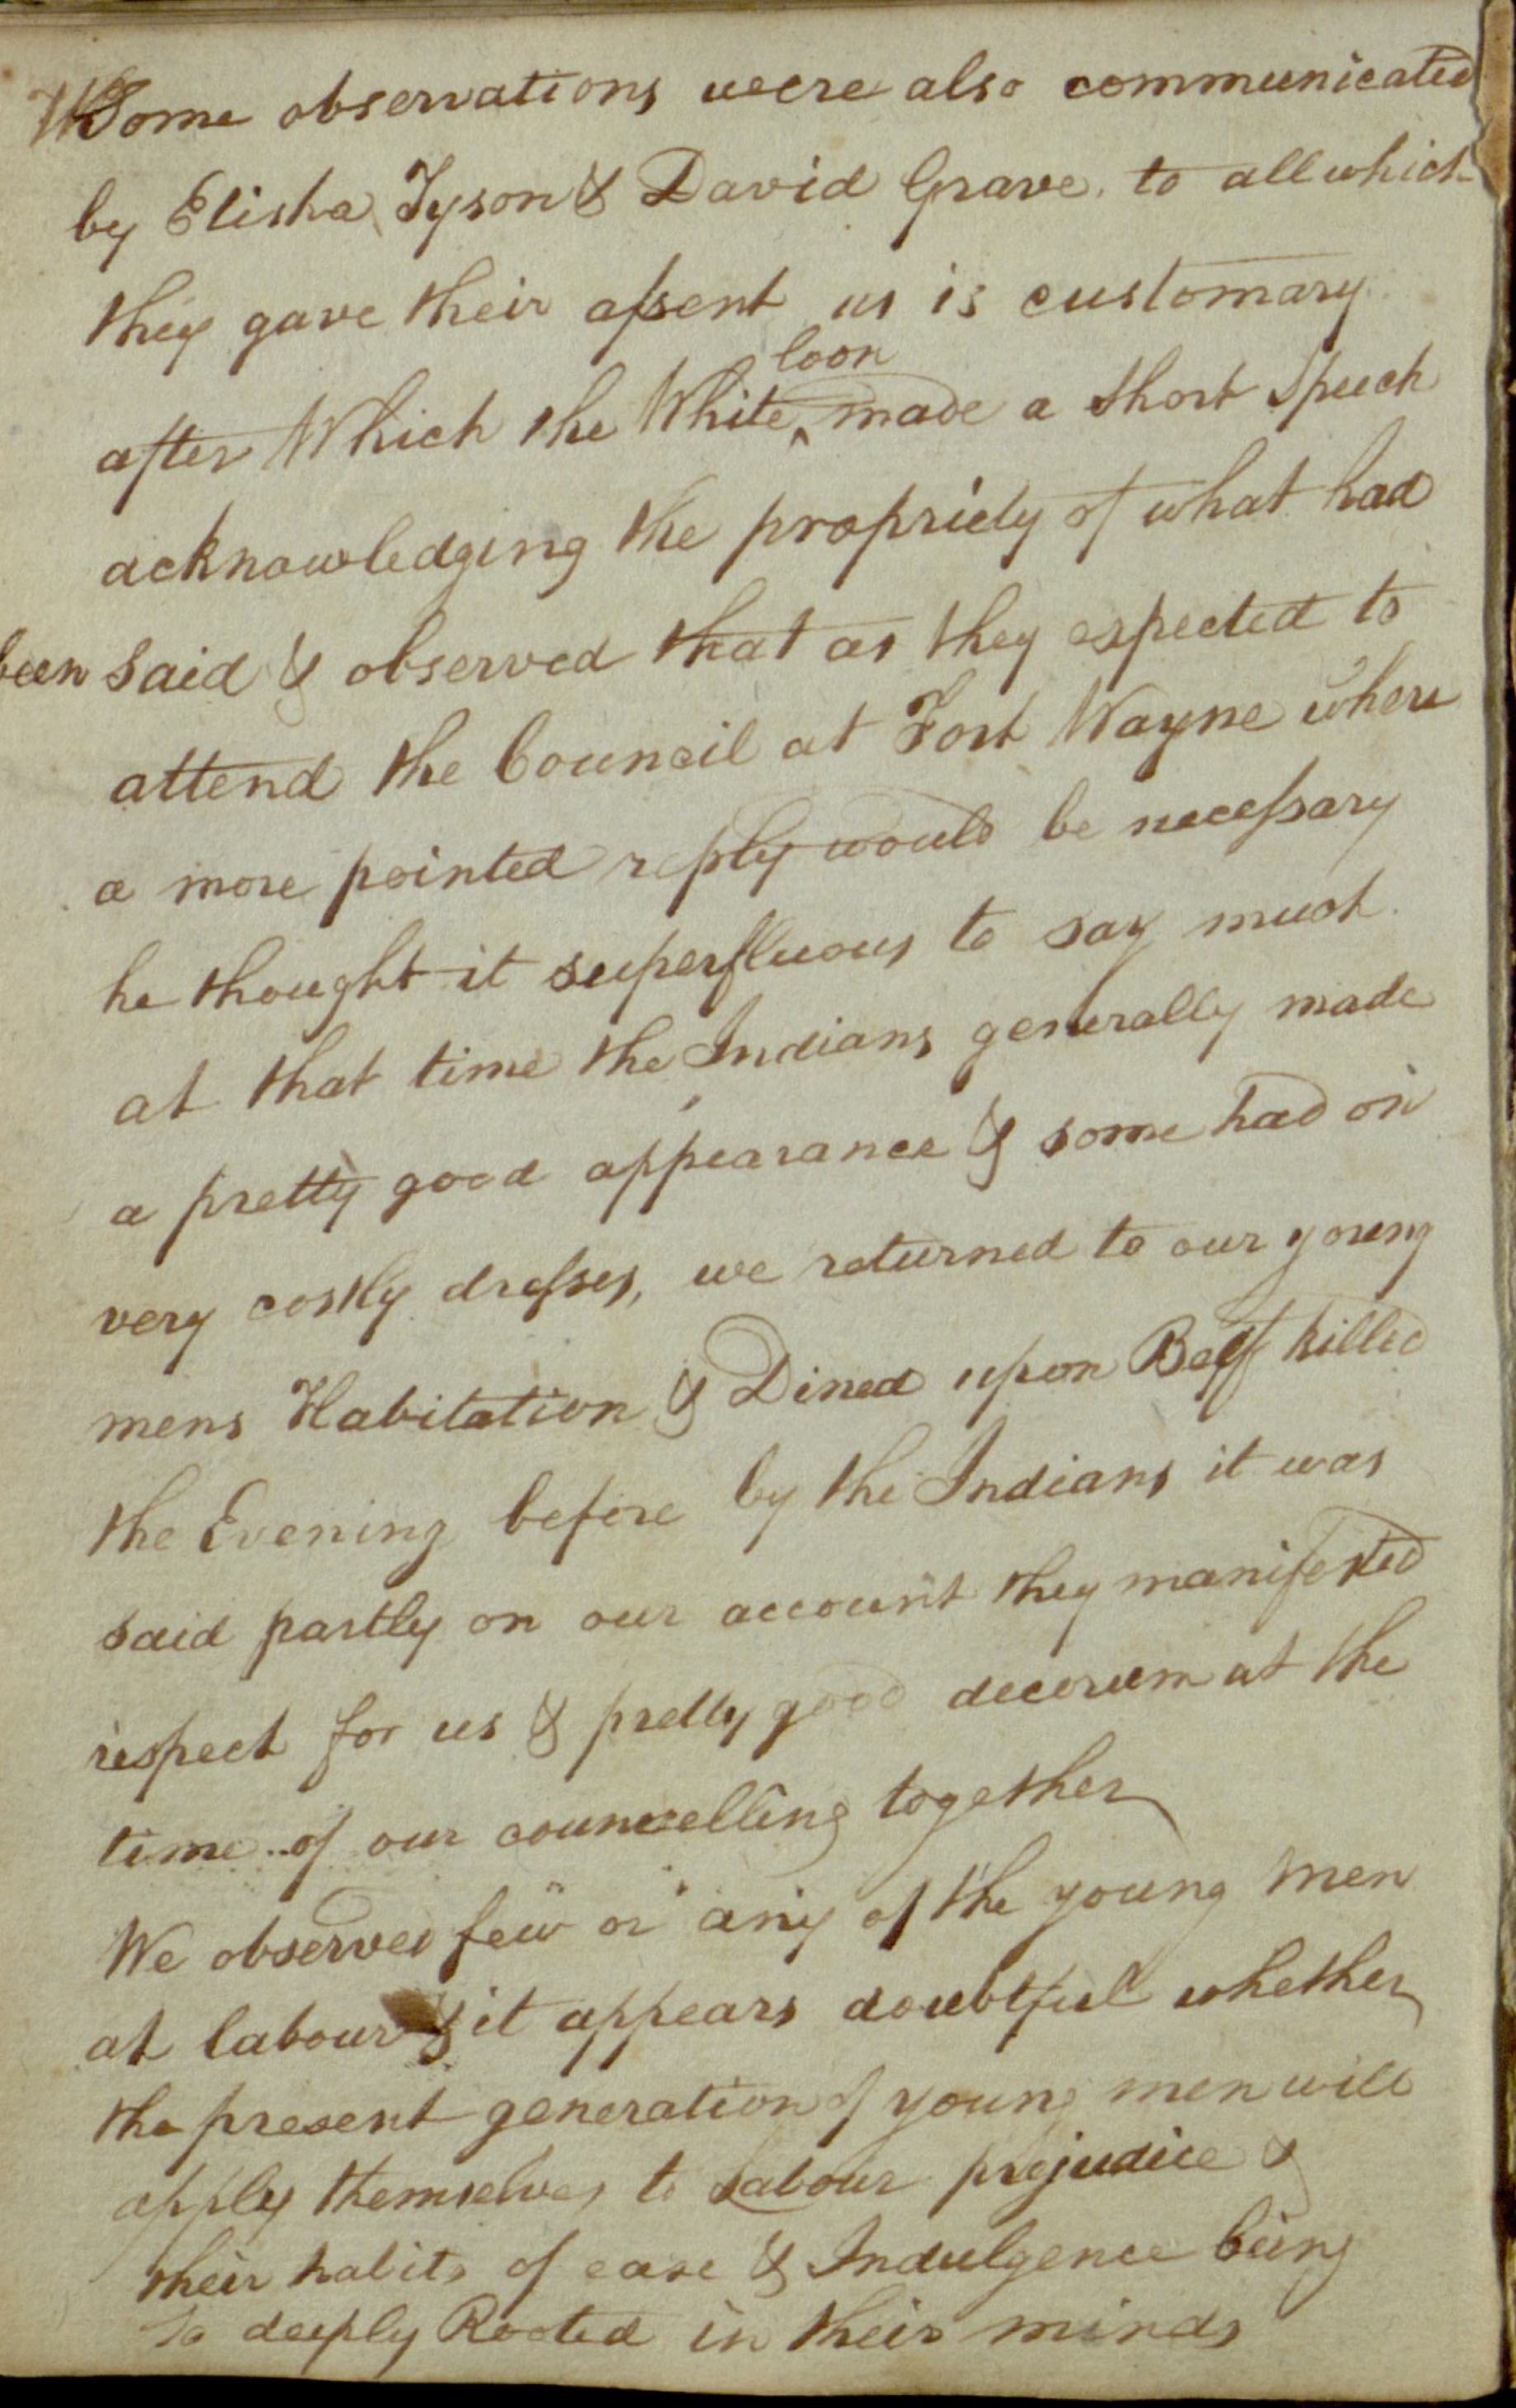 Some observations were also communicated
by Elisha Tyson & David Grave. to all which
they gave their assent as is customary
after Which the White loon made a short Speech
acknowledging the propriety of what had
been said & observed that as they expected to
attend the Council at Fort Wayne where
a more pointed reply would be necessary
he thought it superfluous to say much
at that time the Indians generally made
a pretty good appearance & some had on
very costly dresses, we returned to our young
mens Habitation & Dined upon Beef killed
the Evening before by the Indians it was
said partly on our account they manifested
respect for us & pretty good decorum at the
time of our councelling together
We observed few or any of the young men
at labour & it appears doubtful whether
the present generation of young men will
apply themselves to Labour prejudice &
their habits of ease & Indulgence being
so deeply Rooted in their minds